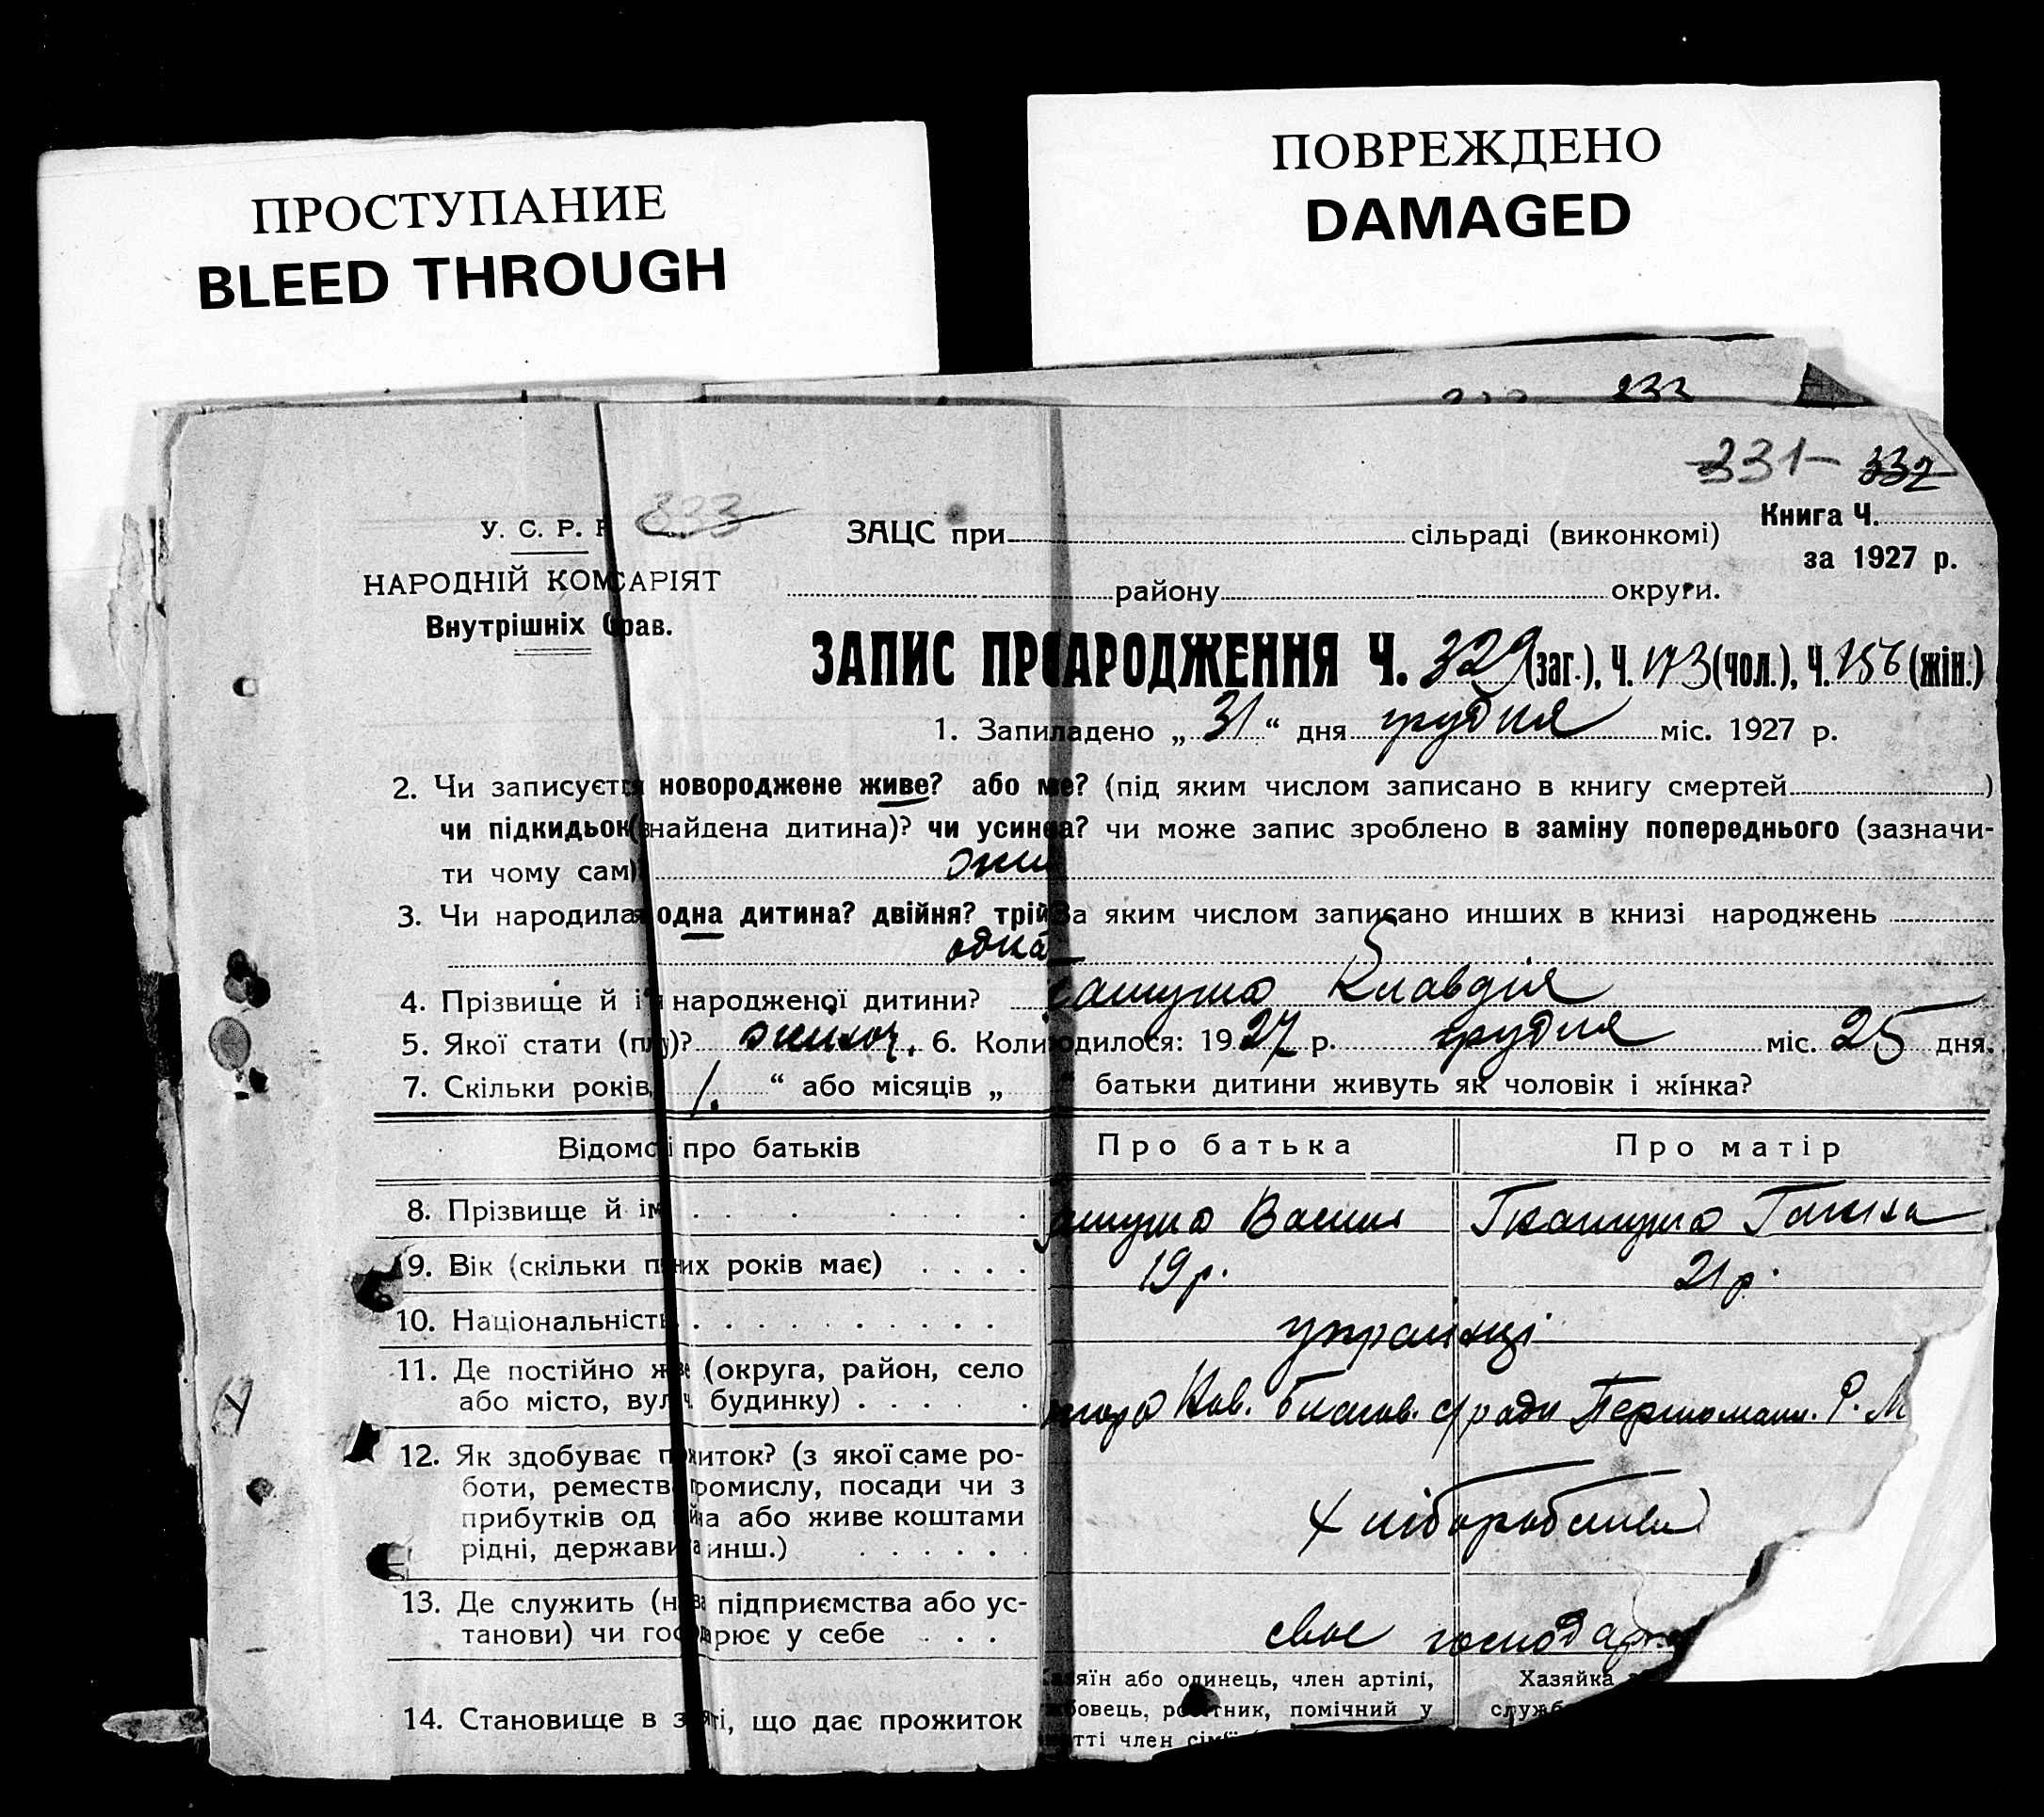 ПРОСТУПАНИЕ
BLEED THROUGH
ПОВРЕЖДЕНО
DAMAGED
332
331- 332
333
У. С. Р. Р
ЗАЦС при сільраді (виконкомі)
Книга Ч.
за 1927 р.
НАРОДНІЙ КОМСАРІЯТ
району округи.
Внутрішніх Справ.
ЗАПИС ПРО НАРОДЖЕННЯ Ч. 329 (заг.), Ч. 173 (чол.), Ч. 156 (жін.)
1. Запис складено „ 31 “ дня грудня міс. 1927 р.
2. Чи записується новороджене живе? або ме? (під яким числом записано в книгу смертей )
чи підкидьок (знайдена дитина)? чи усинова? чи може запис зроблено в заміну попереднього (зазначи-
ти чому сам)
3. Чи народилася одна дитина? двійня? трій За яким числом записано инших в книзі народжень
одна
4. Прізвище й ім народженої дитини? Клавдія
5. Якої стати (полу)? жіноч. 6. Коли родилося: 1927 р. грудня міс. 25 дня.
7. Скільки років, 1. “ або місяців „ “ батьки дитини живуть як чоловік і жінка?
Відомості про батьків
Про батька
Про матір
8. Прізвище й ім Васил Гнатушо Ганна
9. Вік (скільки повних років має) 19 р. 21 р.
10. Національність українці
11. Де постійно живе (округа, район, село
або місто, вул будинку) Нов. с/ради Першомайн. Р. М
12. Як здобуває прожиток? (з якої саме ро-
боти, ремества, промислу, посади чи з
прибутків од майна або живе коштами
рідні, держави та инш.)
Хліборобство
13. Де служить (назва підприємства або ус-
танови) чи господарює у себе
своє господар
14. Становище в занятті, що дає прожиток
Хазяїн або одинець, член артілі,
бовець, робітник, помічний у
тті член сім'ї
Хазяйка
служб